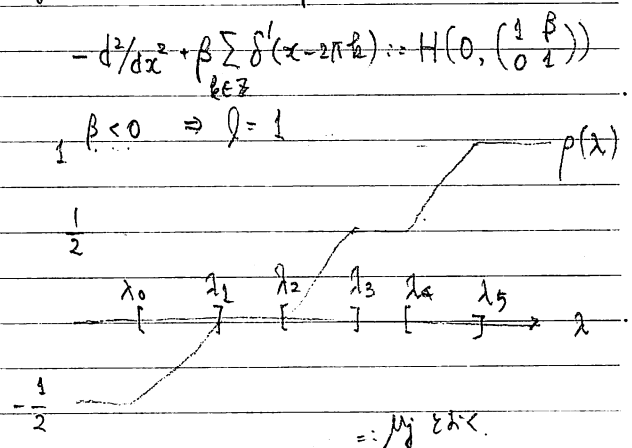 - d²/dx² + β Σ δ'(x-2πk) := H(0, (1 β
0 1))
k∈Z
β<0 ⇒ l = 1
1
ρ(λ)
1/2
λ₀ λ₁ λ₂ λ₃ λ₄ λ₅
[ ] [ ] [ ] λ
- 1/2
=: μj とおく.